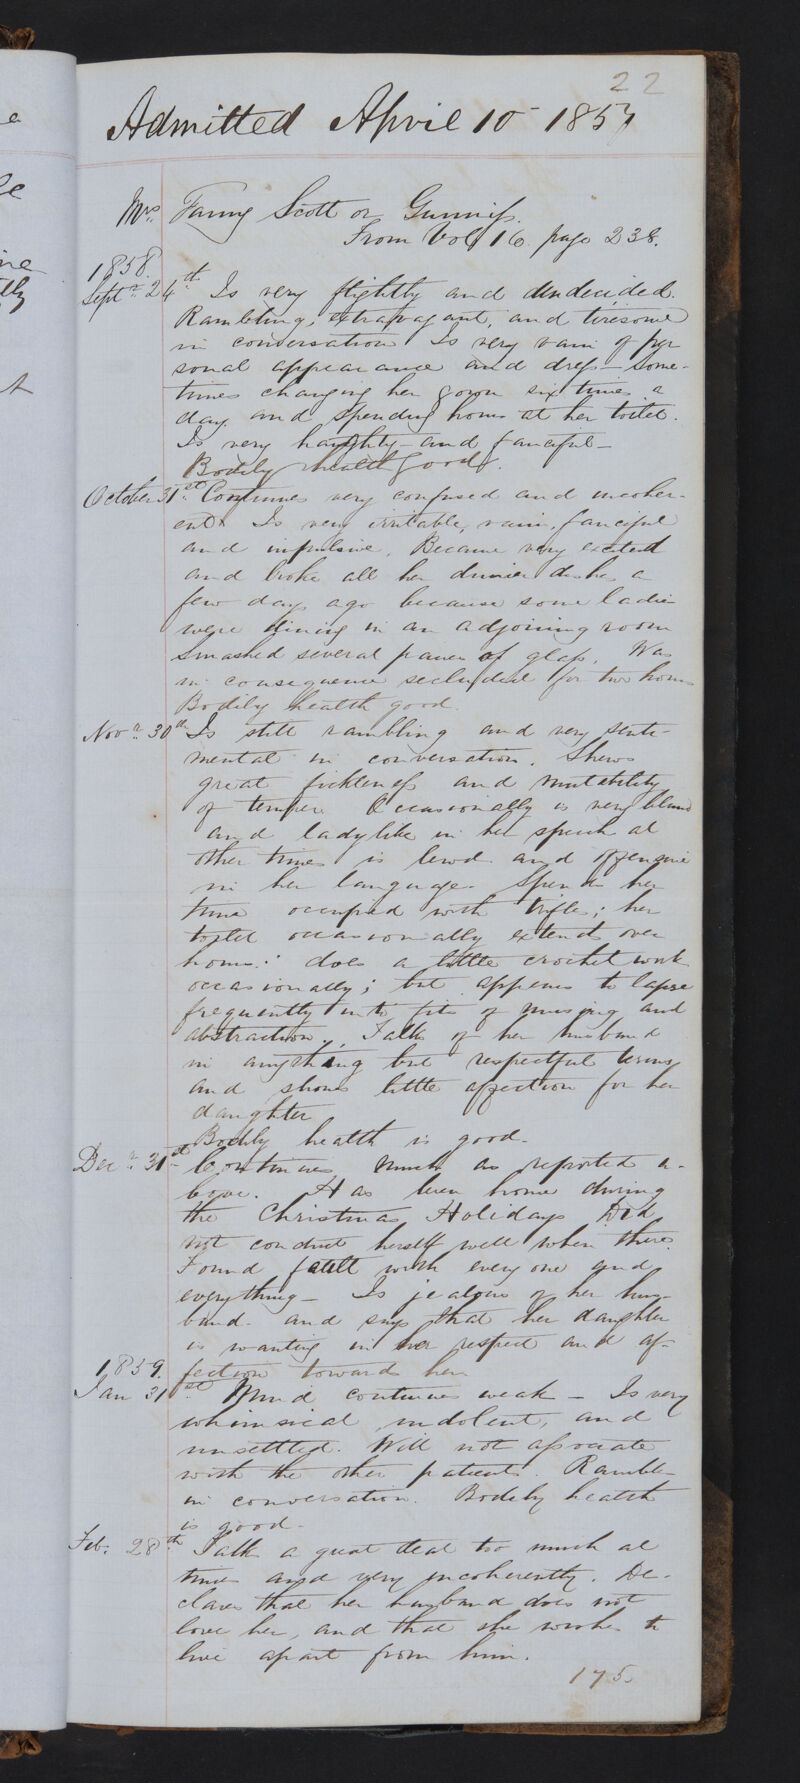 22
Admitted April 10 1857
Mrs. Fanny Scott or Gunniss.
From Vol 16 page 238.
1858.
Septr. 24th Is very flightly and undecided.
Rambling, extravagant, and tiresome
in conversation Is very vain of per
sonal appearance and dress - some-
times changing her gown six times a
day and spending hours at her toilet.
Is very haughty and fanciful -
Bodily health good.
October 31st Continues very confused and incoher-
ent. Is very irritable, vain, fanciful
and impulsive. Became very excited
and broke all her dinner dishes a
few days ago because some ladies
were dining in an adjoining room
Smashed several panes of glass. Was
in consequence secluded for two hours
Bodily health good.
Novr. 30th Is still rambling and very senti-
mental in conversation. Shews
great fickleness and mutability
of temper. Occasionally is very bland
and ladylike in her speech at
other times is lewd and offensive
in her language. Spends her
time occupied with trifles; her
toilet occasionally extends over
hours: does a little crochet work
occasionally; but appears to lapse
frequently into fits of musing and
abstraction. Talks of her husband
in anything but respectful terms
and shows little affection for her
daughter
Bodily health is good.
Decr. 31st Continues much as reported a-
bove. Has been home during
the Christmas Holidays Did
not conduct herself well when there.
Found fault with every one and
everything - Is jealous of her hus-
band and says that her daughter
is wanting in respect and af-
fection towards her.
1859.
Jan 31st Mind continues weak - Is very
whimsical, indolent, and
unsettled. Will not associate
with the other patients. Rambles
in conversation. Bodily health
is good -
Feb. 28th Talks a great deal too much at
times and very incoherently. De-
clares that her husband does not
love her, and that she wishes to
live apart from him.
175.